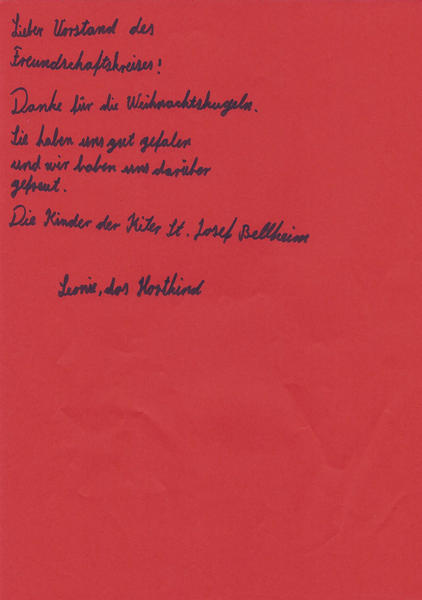 Lieber Vorstand des
Freundschaftskreises!
Danke für die Weihnachtskugeln.
Sie haben uns gut gefalen
und wir haben uns darüber
gefreut.
Die Kinder der Kiter St. Josef Bellheim
Leonie, das Hortkind